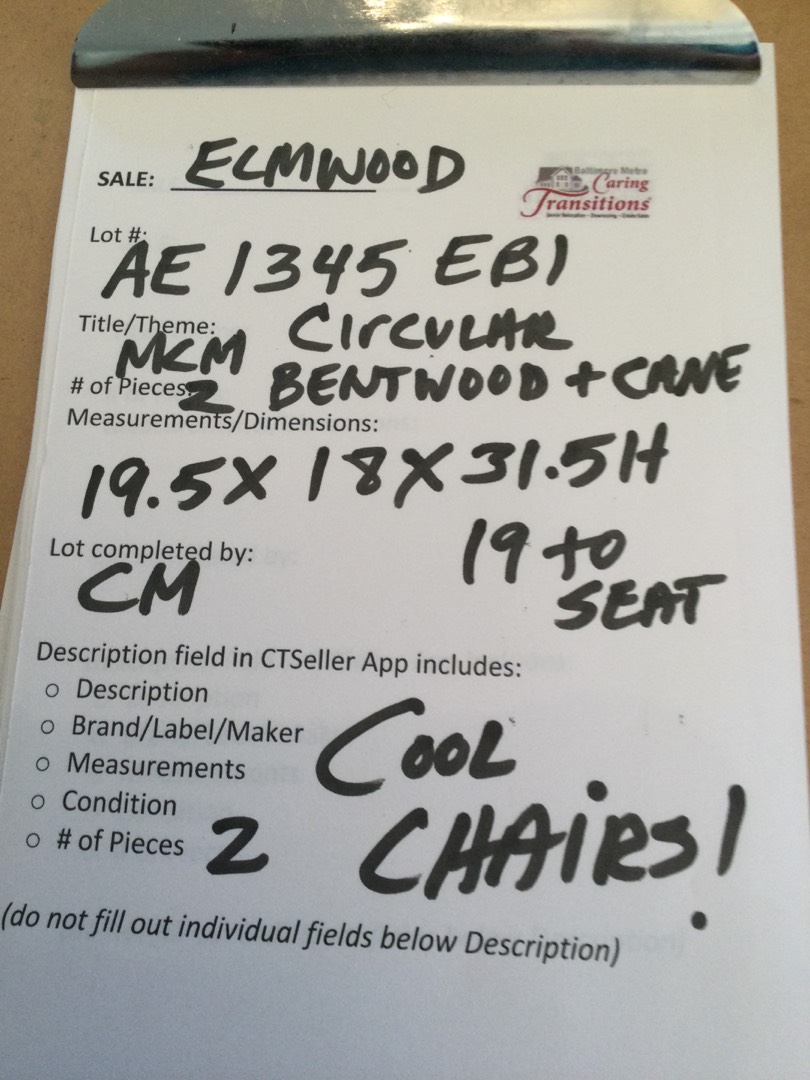 SALE: ELMWOOD
Baltimore Metro
Caring
Transitions
Lot #:
AE 1345 EB1
Title/Theme: CIrCULAR
MCM
# of Pieces: 2 BENTWOOD + CANE
Measurements/Dimensions:
19.5X 18X 31.5H
Lot completed by: 19 to
CM SEAT
Description field in CTSeller App includes:
○ Description
○ Brand/Label/Maker COOL
○ Measurements
○ Condition CHAiRs!
○ # of Pieces 2
(do not fill out individual fields below Description)